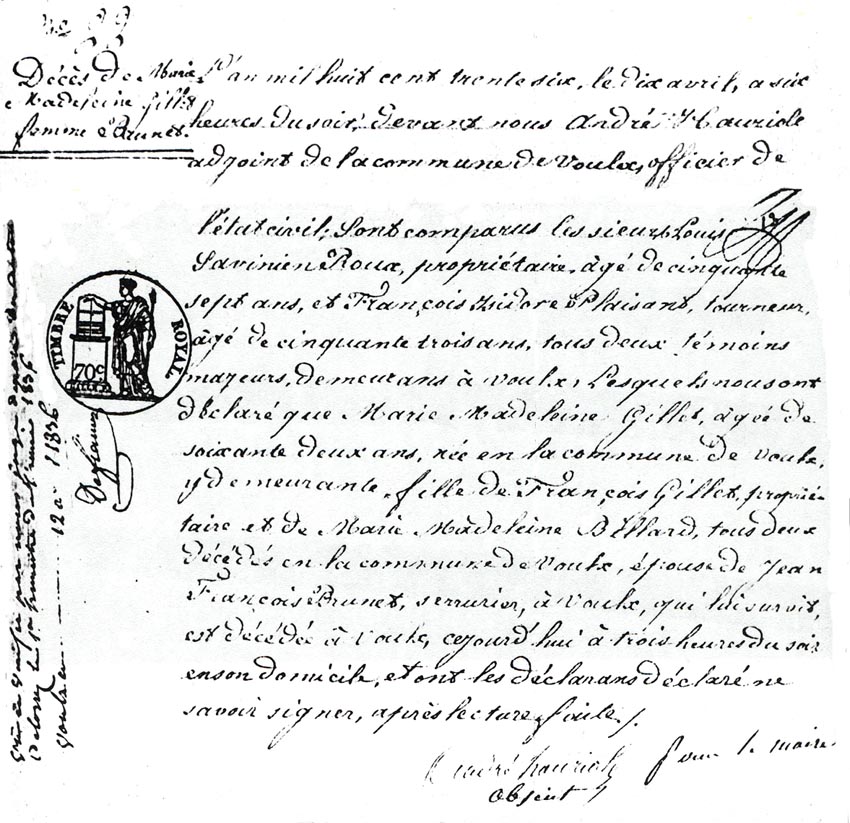 Décès de Marie
Madeleine Gillet
femme Brunet.
L'an mil huit cent trente six, le dix avril, a six
heures du soir, devant nous André Hauriole
adjoint de la commune de Voulx, officier de
l'état civil; Sont comparus les sieurs Louis
Savinien Roux, propriétaire, âgé de cinquante
sept ans, et François Isidore Plaisant, tourneur,
âgé de cinquante trois ans, tous deux témoins
majeurs, demeurans à Voulx, Lesquels nous ont
déclaré que Marie Madeleine Gillet, âgée de
soixante deux ans, née en la commune de Voulx,
y demeurante, fille de François Gillet, proprié-
taire et de Marie Madeleine Billard, tous deux
décédés en la commune de Voulx, épouse de Jean
François Brunet, serrurier, à Voulx, qui lui survit,
est décédée à Voulx, cejourd'hui à trois heures du soir
en son domicile, et ont les déclarans déclaré ne
savoir signer, après lecture faite /.
André hauriole pour le maire
absent
TIMBRE ROYAL
70c
1836